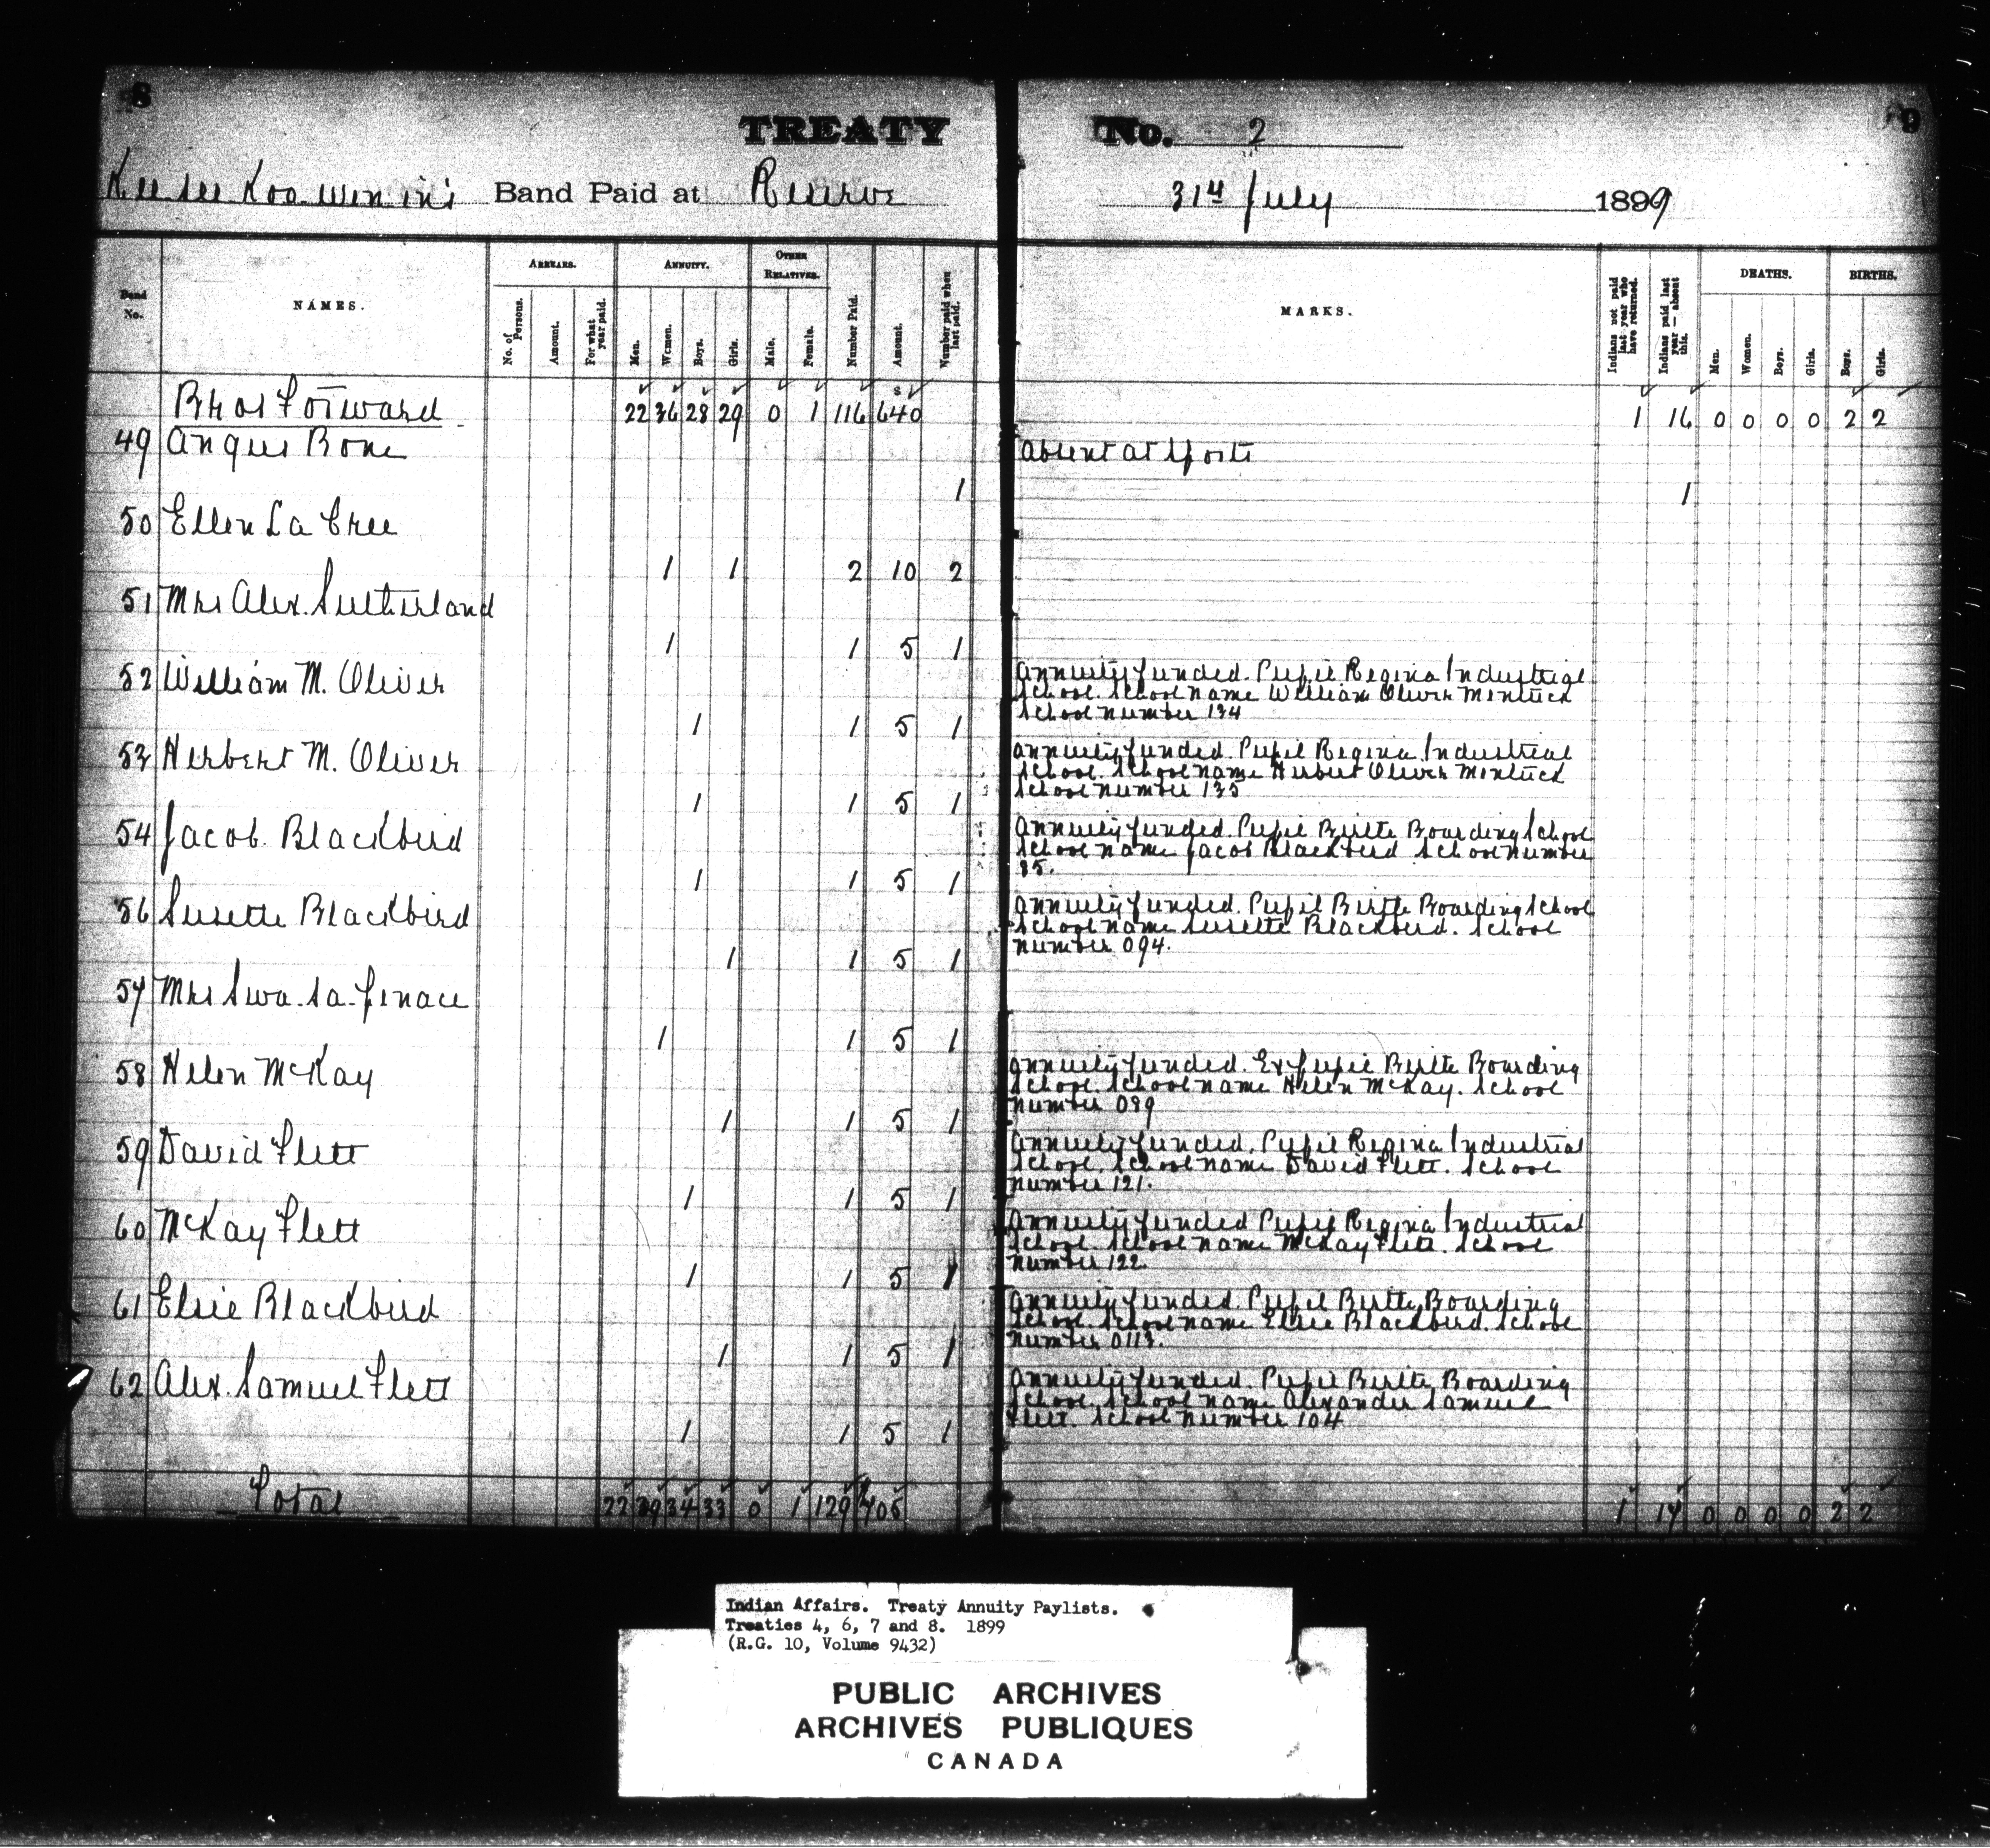 8
TREATY No. 2
9
Kee see Koo wen in's Band Paid at Reserve 31st July 1899
Band No.
NAMES.
ARREARS.
No. of Persons.
Amount.
For what year paid.
ANNUITY.
Men.
Women.
Boys.
Girls.
OTHER RELATIVES.
Male.
Female.
Number Paid.
Amount.
Number paid when last paid.
MARKS.
Indians not paid last year who have returned.
Indians paid last year — absent this.
DEATHS.
Men.
Women.
Boys.
Girls.
BIRTHS.
Boys.
Girls.
$
Brot Forward 22 36 28 29 0 1 116 640 1 16 0 0 0 0 2 2
49 Angus Bone Absent at Sports
1 1
50 Ellen La Cree
1 1 2 10 2
51 Mrs Alex. Sutherland
1 1 5 1
52 William M. Oliver
Annuity funded. Pupil Regina Industrial
School. School name William Oliver Mentuck
School number 134
1 1 5 1
53 Herbert M. Oliver
Annuity funded. Pupil Regina Industrial
School. School name Herbert Oliver Mentuck
School number 135
1 1 5 1
54 Jacob Blackbird
Annuity funded. Pupil Birtle Boarding School
School name Jacob Blackbird School number
85.
1 1 5 1
56 Susette Blackbird
Annuity funded. Pupil Birtle Boarding School
School name Susette Blackbird. School
number 094.
1 1 5 1
57 Mrs Swa-sa-pinace
1 1 5 1
58 Helen McKay
Annuity funded. Ex pupil Birtle Boarding
School. School name Helen McKay. School
number 089
1 1 5 1
59 David Flett
Annuity funded. Pupil Regina Industrial
School. School name David Flett. School
number 121.
1 1 5 1
60 McKay Flett
Annuity funded Pupil Regina Industrial
School. School name McKay Flett. School
number 122.
1 1 5 1
61 Elsie Blackbird
Annuity funded. Pupil Birtle Boarding
School. School name Elsie Blackbird. School
number 0113.
1 1 5 1
62 Alex. Samuel Flett
Annuity funded. Pupil Birtle Boarding
School. School name Alexander Samuel
Flett. School number 104
1 1 5 1
Total 22 39 34 33 0 1 129 705 1 17 0 0 0 0 2 2
Indian Affairs. Treaty Annuity Paylists.
Treaties 4, 6, 7 and 8. 1899
(R.G. 10, Volume 9432)
PUBLIC ARCHIVES
ARCHIVES PUBLIQUES
CANADA